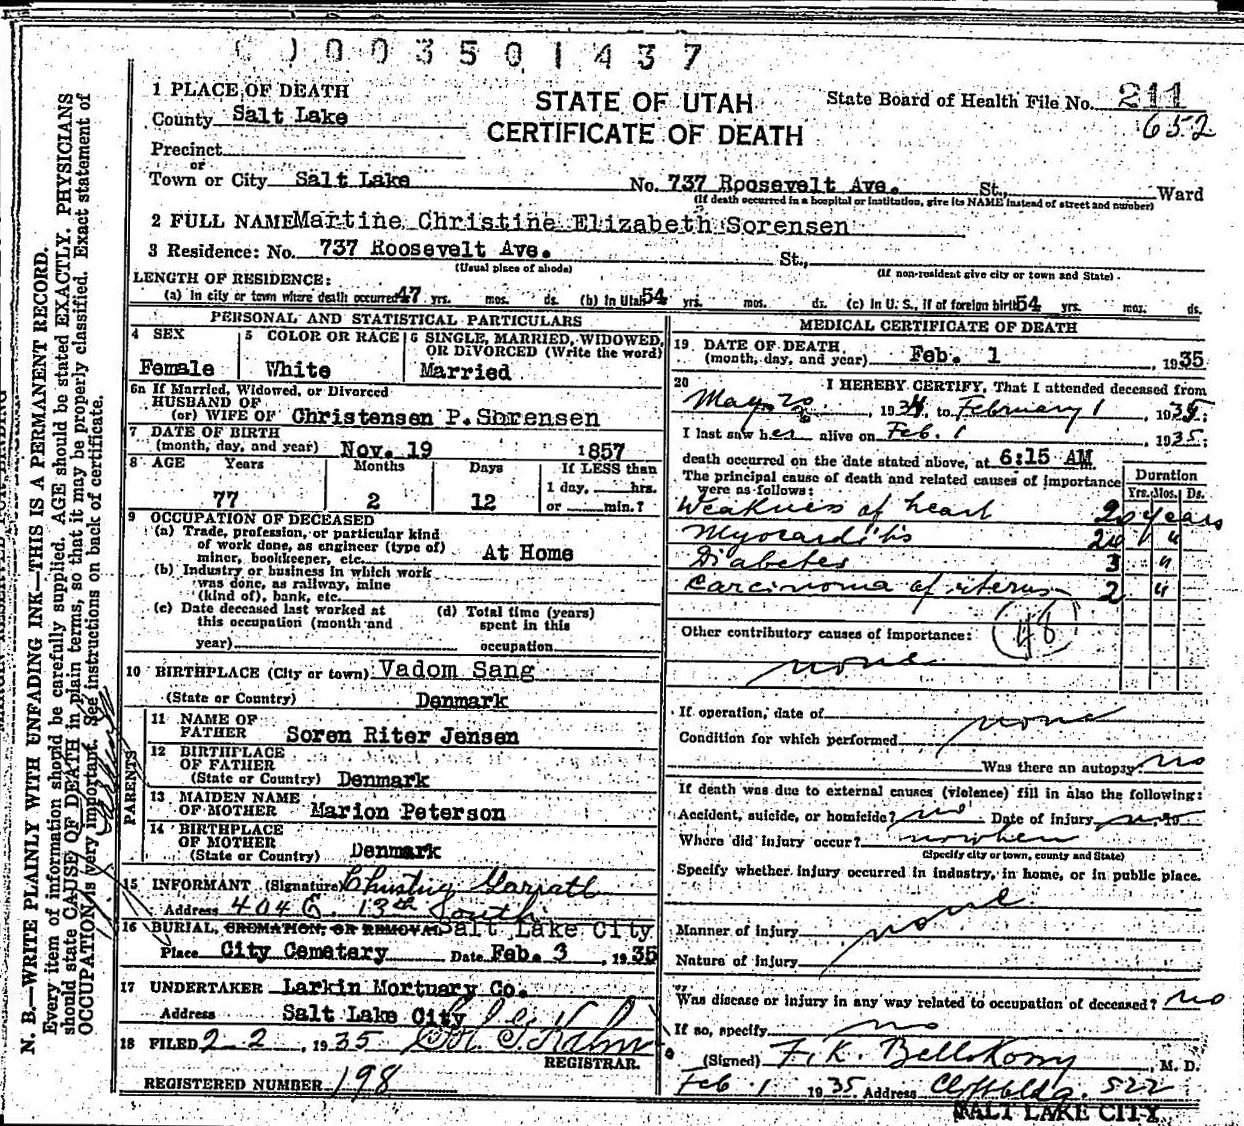 003501437
STATE OF UTAH
CERTIFICATE OF DEATH
State Board of Health File No. 211
652
1 PLACE OF DEATH
County Salt Lake
Precinct
or
Town or City Salt Lake No. 737 Roosevelt Ave. St., Ward
(If death occurred in a hospital or institution, give its NAME instead of street and number)
2 FULL NAME Martine Christine Elizabeth Sorensen
3 Residence: No. 737 Roosevelt Ave. St.,
(Usual place of abode) (If non-resident give city or town and State)
LENGTH OF RESIDENCE:
(a) In city or town where death occurred 47 yrs. mos. ds. (b) In Utah 54 yrs. mos. ds. (c) In U. S., if of foreign birth 54 yrs. mos. ds.
PERSONAL AND STATISTICAL PARTICULARS
4 SEX
Female
5 COLOR OR RACE
White
6 SINGLE, MARRIED, WIDOWED,
OR DIVORCED (Write the word)
Married
6a If Married, Widowed, or Divorced
HUSBAND OF
(or) WIFE OF Christensen P. Sorensen
7 DATE OF BIRTH
(month, day, and year) Nov. 19 1857
8 AGE Years Months Days If LESS than
1 day, hrs.
77 2 12 or min.?
9 OCCUPATION OF DECEASED
(a) Trade, profession, or particular kind
of work done, as engineer (type of)
miner, bookkeeper, etc. At Home
(b) Industry or business in which work
was done, as railway, mine
(kind of), bank, etc.
(c) Date deceased last worked at
this occupation (month and
year)
(d) Total time (years)
spent in this
occupation
10 BIRTHPLACE (City or town) Vadom Sang
(State or Country) Denmark
PARENTS
11 NAME OF
FATHER Soren Riter Jensen
12 BIRTHPLACE
OF FATHER
(State or Country) Denmark
13 MAIDEN NAME
OF MOTHER Marion Peterson
14 BIRTHPLACE
OF MOTHER
(State or Country) Denmark
15 INFORMANT (Signature)
Address 404 E. 13th South
16 BURIAL, CREMATION, OR REMOVAL Salt Lake City
Place City Cemetary Date Feb. 3, 1935
17 UNDERTAKER Larkin Mortuary Co.
Address Salt Lake City
18 FILED 2-2, 1935
REGISTRAR.
REGISTERED NUMBER 198
MEDICAL CERTIFICATE OF DEATH
19 DATE OF DEATH
(month, day, and year) Feb. 1, 1935
20 I HEREBY CERTIFY, That I attended deceased from
May 20, 1934, to February 1, 1935;
I last saw her alive on Feb. 1, 1935;
death occurred on the date stated above, at 6:15 AM
The principal cause of death and related causes of importance
were as follows:
Duration
Yrs. Mos. Ds.
Weaknes of heart 20 years
Myocarditis 20 "
Diabetes 3 "
Carcinoma of uterus 2 "
48
Other contributory causes of importance:
none
If operation, date of none
Condition for which performed
Was there an autopsy? no
If death was due to external causes (violence) fill in also the following:
Accident, suicide, or homicide? no Date of injury no, 19
Where did injury occur? nowhen
(Specify city or town, county and State)
Specify whether injury occurred in industry, in home, or in public place.
none
Manner of injury no
Nature of injury
Was disease or injury in any way related to occupation of deceased? no
If so, specify no
(Signed) M. D.
Feb. 1 1935 Address Clift bldg. 522
SALT LAKE CITY
N. B.—WRITE PLAINLY WITH UNFADING INK—THIS IS A PERMANENT RECORD.
Every item of information should be carefully supplied. AGE should be stated EXACTLY. PHYSICIANS
should state CAUSE OF DEATH in plain terms, so that it may be properly classified. Exact statement of
OCCUPATION is very important. See instructions on back of certificate.